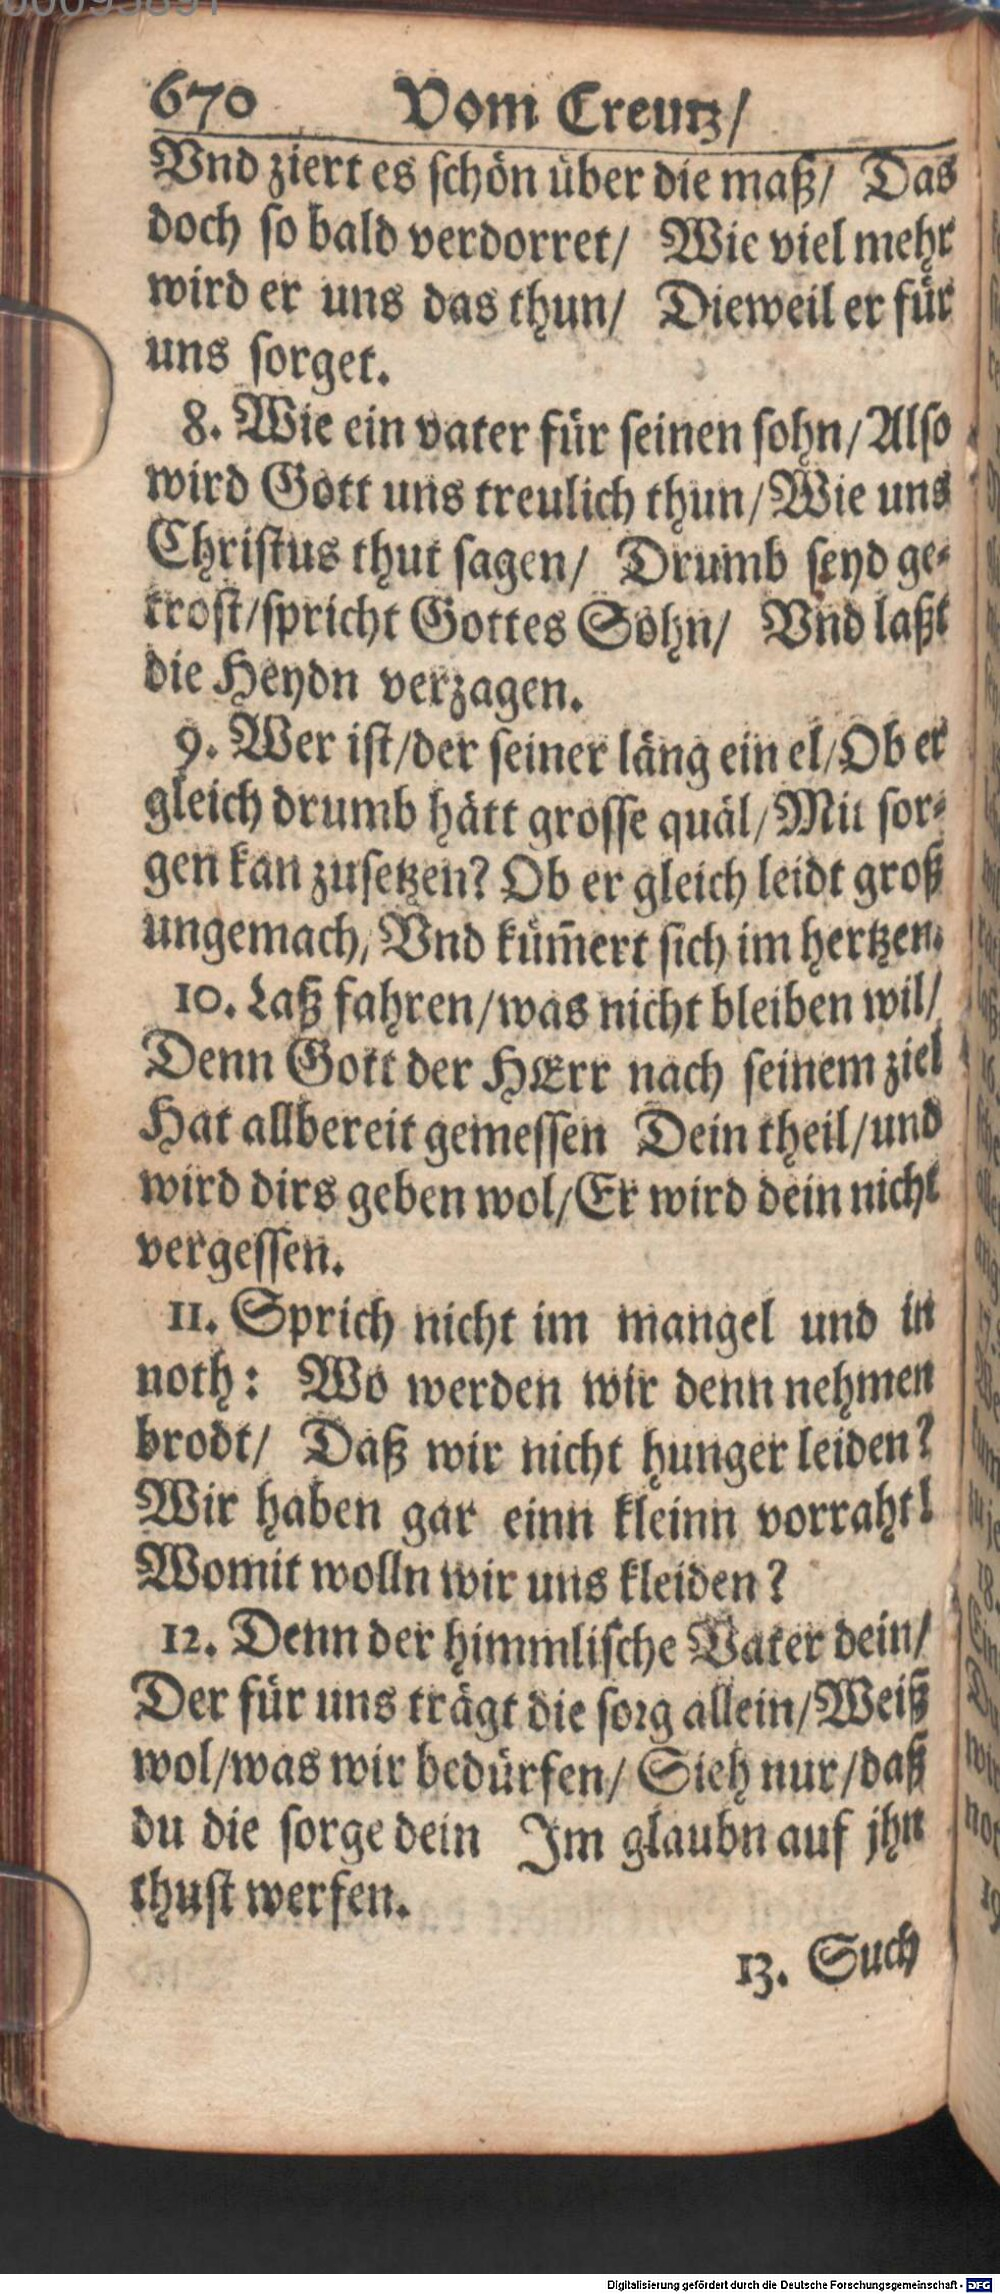 670 Vom Creutz/
Vnd ziert es schön über die maß/ Das
doch so bald verdorret/ Wie viel mehr
wird er uns das thun/ Dieweil er für
uns sorget.
8. Wie ein vater für seinen sohn/Also
wird Gott uns treulich thun/Wie uns
Christus thut sagen/ Drumb seyd ge-
trost/spricht Gottes Sohn/ Vnd laßt
die Heydn verzagen.
9. Wer ist/der seiner läng ein el/Ob er
gleich drumb hätt grosse quäl/Mit sor-
gen kan zusetzen? Ob er gleich leidt groß
ungemach/Vnd küm̄ert sich im hertzen.
10. Laß fahren/was nicht bleiben wil/
Denn Gott der HErr nach seinem ziel
Hat allbereit gemessen Dein theil/und
wird dirs geben wol/Er wird dein nicht
vergessen.
11. Sprich nicht im mangel und in
noth: Wo werden wir denn nehmen
brodt/ Daß wir nicht hunger leiden?
Wir haben gar einn kleinn vorraht!
Womit wolln wir uns kleiden?
12. Denn der himmlische Vater dein/
Der für uns trägt die sorg allein/Weiß
wol/was wir bedürfen/ Sieh nur/daß
du die sorge dein Im glaubn auf jhn
thust werfen.
13. Such
Digitalisierung gefördert durch die Deutsche Forschungsgemeinschaft - DFG